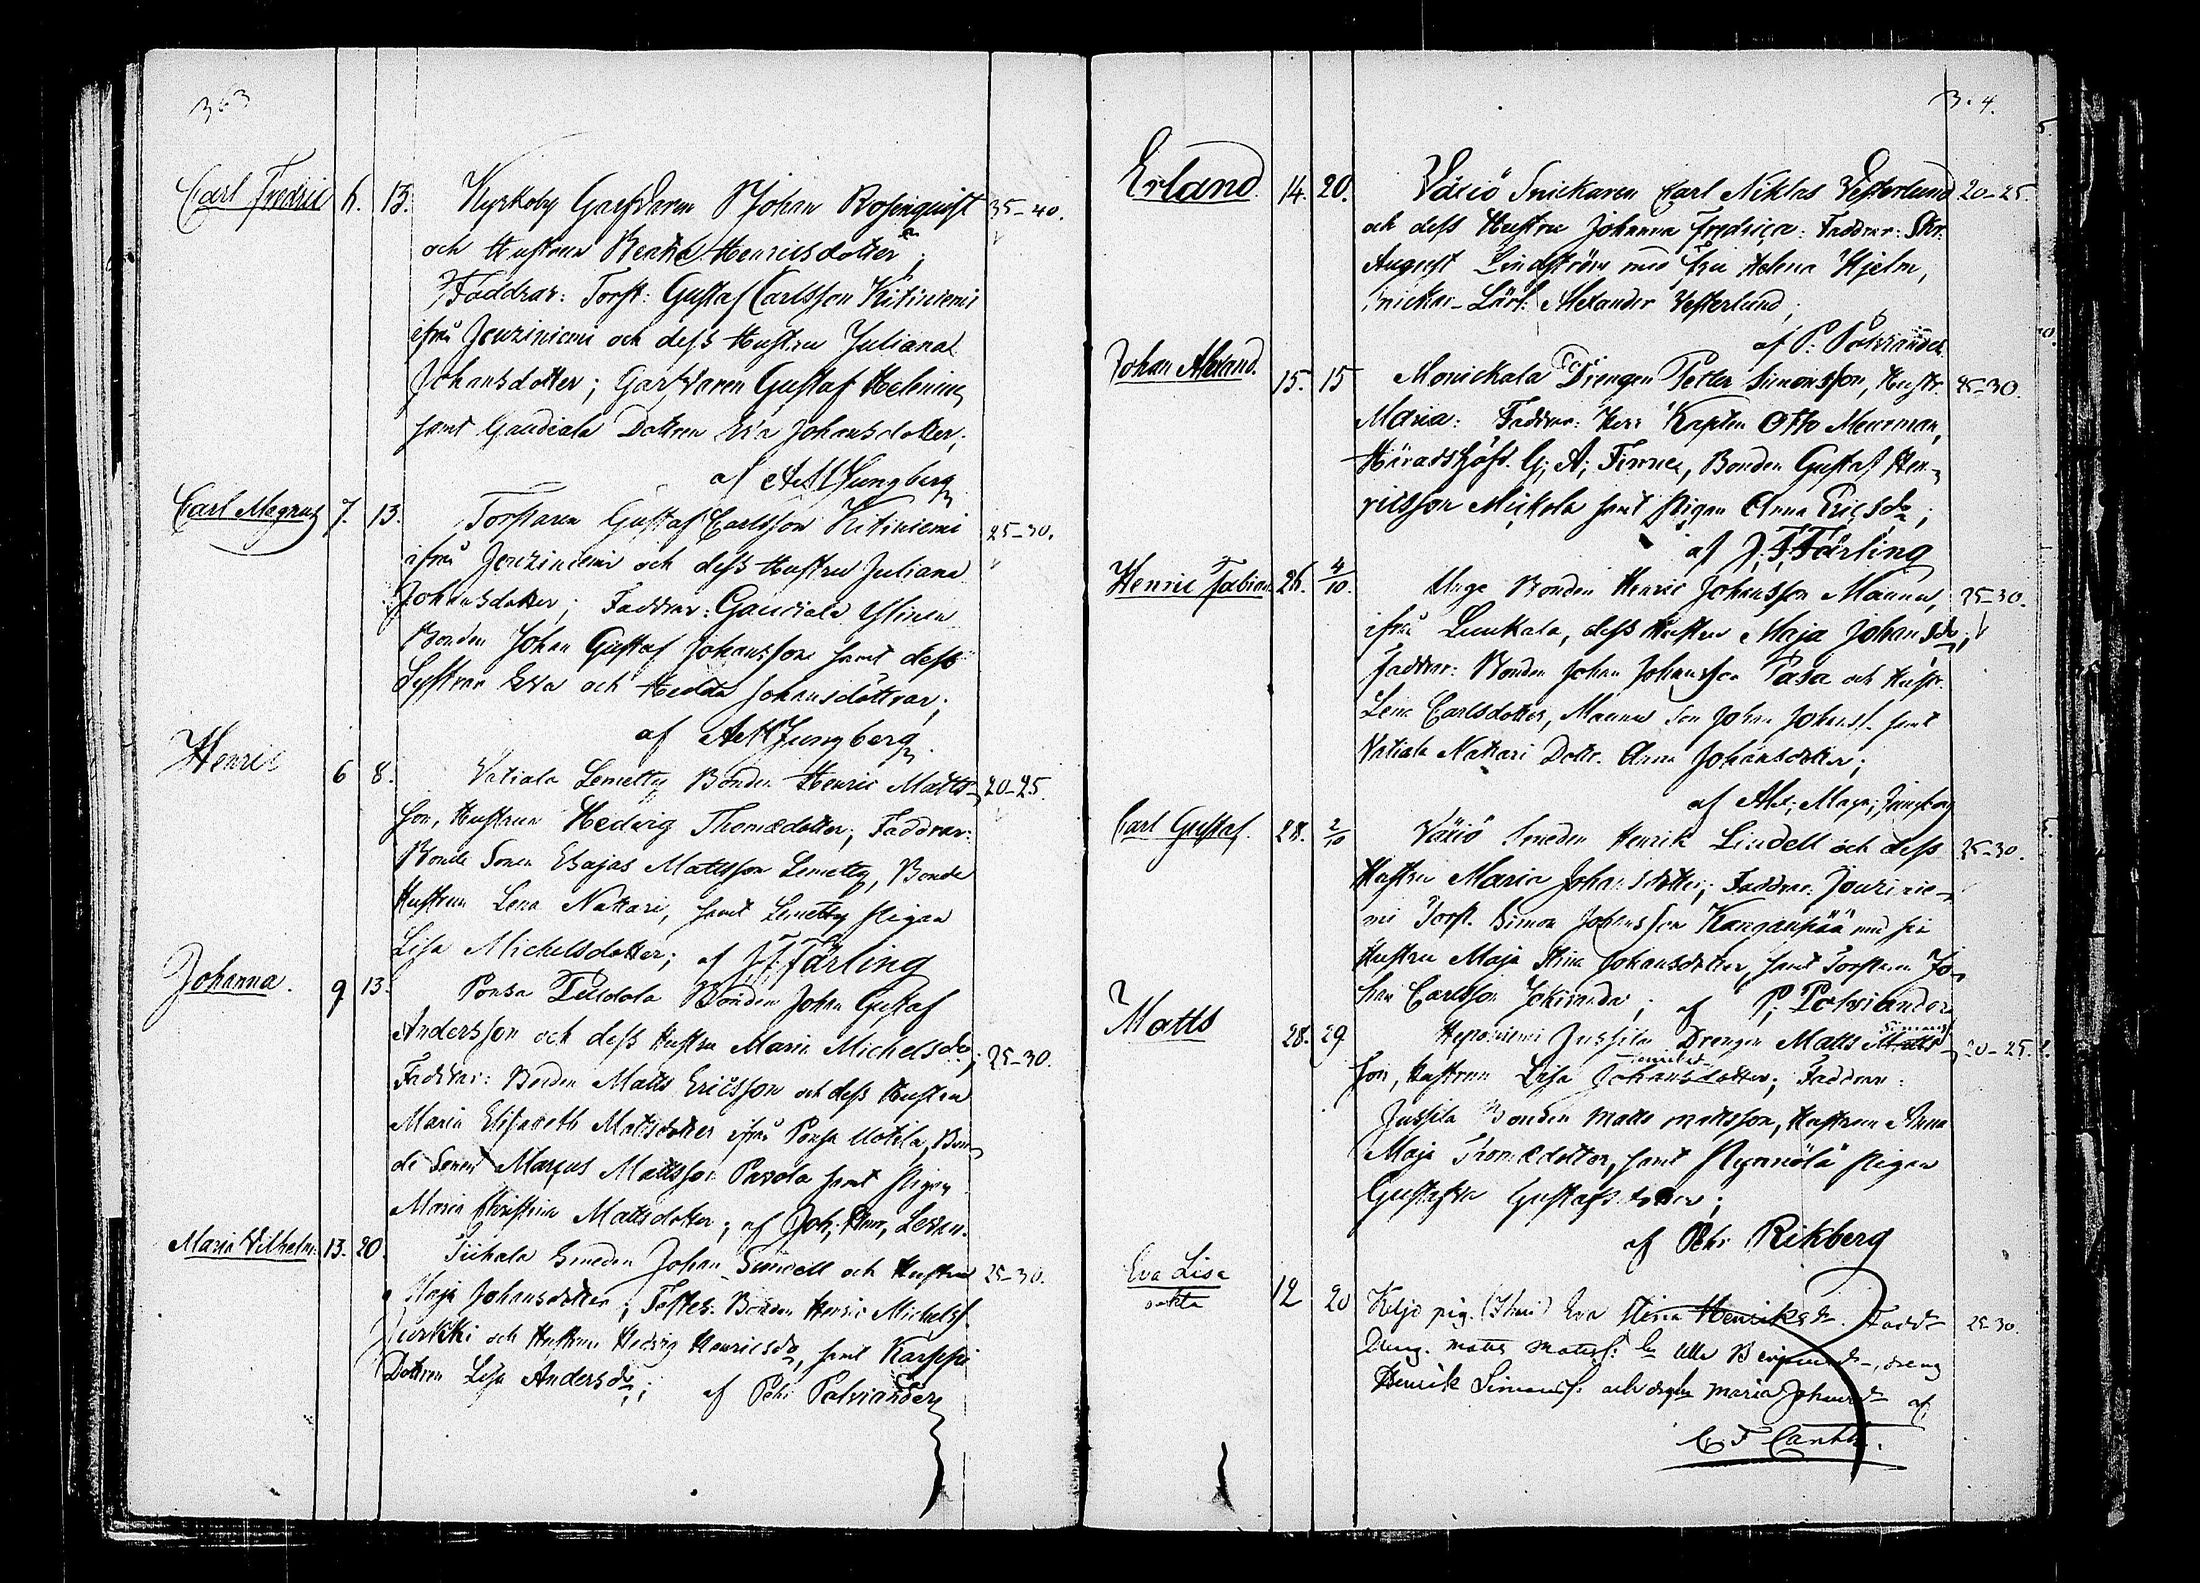 363
Carl Fredric 6. 13. Kyrkoby Garfvaren Johan Rosenquist 35-40.
och Hustrun Beata Henricsdotter;
Faddrar: Torp: Gustaf Carlsson Kitiniemi
ifrån Jouziniemi och dess Hustru Juliana
Johansdotter; Garfvaren Gustaf Helenius
samt Gaudiala Dottren Eva Johansdotter;
af A M Ljungberg
Carl Magnus 7. 13. Torparen Gustaf Carlsson Kitiniemi 25-30.
ifrån Jouziniemi och dess Hustru Juliana
Johansdotter; Faddrar: Gaudiala Ylinen
Bonden Johan Gustaf Johansson samt dess
Systrar Eva och Hedda Johansdöttrar;
af A M Ljungberg
Henric 6 8. Vatiala Lemetty Bonden Henric Matts- 20-25.
son, Hustrun Hedvig Thomædotter; Faddrar:
Bonde Sonen Esajas Mattsson Lemetty, Bonde
Hustrun Lena Nattari, samt Lemetty Pigan
Lisa Michelsdotter; af J. F. Färling
Johanna. 9 13. Ponsa Bonden Johan Gustaf
Andersson och dess Hustru Maria Michelsdr; 25-30.
Faddrar: Bonden Matts Ericsson och dess Hustru
Maria Elisabeth Mattsdotter ifrån Ponsa Uotila, Bon-
de Sonen Marcus Mattsson Pavola samt Pigan
Maria Christina Mattsdotter; af Joh:
Maria Vilhelm: 13. 20. Tiihala Smeden Johan Sundell och Hustru 25-30.
Maja Johansdotter; Testes: Bonden Henric Michelss:
och Hustrun Hedvig Henricsdr, samt Karppi
Dottren Lisa Andersdr; af Pehr Palviander
3.4.
Erland. 14. 20. Växiö Snickaren Carl Niklas Vesterlund 20-25.
och dess Hustru Johanna Fredrica: Faddrar: Skr:
August Lindström med Fru Helena Hjelm,
Snickar-Lärl: Alexander Vesterlund;
af P: Palviander
Johan Alexand. 15. 15 Monickala Drengen Petter Simonsson, Hustr. 25-30.
Maria: Faddrar: Herr Kapten Otto Meurman,
Häradshöfd. G; A; Finnes, Bonden Gustaf Hen-
ricsson Mickola samt Pigan Anna Ericsdr;
af J. F. Färling
Henric Fabian. 26. 4/10. Bonden Henric Johansson Mannu, 25-30.
ifrån Liukala, dess Hustru Maja Johansdr;
Faddrar: Bonden Johan Johansson Pasa och Hustr.
Lena Carlsdotter, Mannu Son Johan Johanss. samt
Vatiala Nattari Dottr. Anna Johansdotter;
af Alex; Magn; Ljungberg
Carl Gustaf. 28. 2/10 Växiö Smeden Henrik Lindell och dess 25-30.
Hustru Maria Johansdotter; Faddrar: Jouzinie-
mi Torp. Simon Johansson Kanganpää med sin
Hustru Maja Stina Johansdotter, samt Torparen Jo-
han Carlsson Jokiranda; af P; Palviander
Matts 28. 29 Heponiemi Jussila Drengen Matts Simons 20-25.
son, Hustrun Lisa Johansdotter; Faddrar:
Jussila Bonden Matts Mattsson, Hustrun Anna
Maja Thomædotter, samt Pynnölä Pigan
Gustafva Gustafsdotter;
af Pehr Rikberg
Eva Lisa 12 20 Keljo pig. Eva Stina Henriksdr. Faddr 25-30.
oäkta
Dreng. Matts Matss: Ulla dreng
Henrik Simonss: Maria Johansdr af
C. F. Canth.